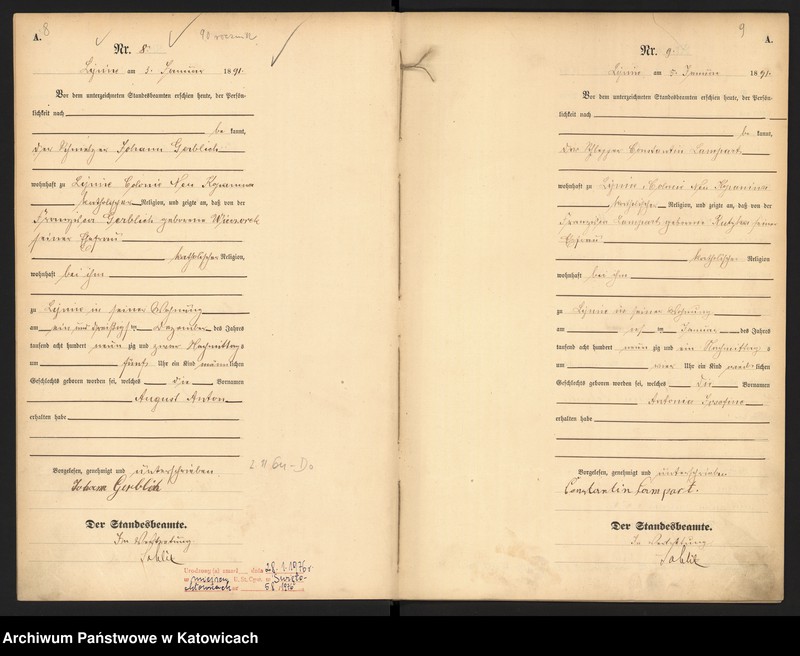 8
A.
Nr. 8.
Lipine am 5. Januar 1891.
Vor dem unterzeichneten Standesbeamten erschien heute, der Persön-
lichkeit nach
be kannt,
der Schmelzer Johann Gerblich
wohnhaft zu Lipine Colonie
katholischer Religion, und zeigte an, daß von der
Franziska Gerblich geborene
seiner Ehefrau
katholischer Religion,
wohnhaft bei ihm
zu Lipine in seiner Wohnung
am ein und dreißigsten Dezember des Jahres
tausend acht hundert neun zig und Nachmittags
um fünf Uhr ein Kind männlichen
Geschlechts geboren worden sei, welches die Vornamen
August Anton
erhalten habe
Vorgelesen, genehmigt und unterschrieben
Johann Gerblich
Der Standesbeamte.
In Vertretung
Urodzony (a) zmarł dnia 28.1.1976r
w U. St. Cyw. w Święto-
chłowicach nr 58/1976
9
A.
Nr. 9
Lipine am 5. Januar 1891.
Vor dem unterzeichneten Standesbeamten erschien heute, der Persön-
lichkeit nach
be kannt,
der Schlepper Constantin Lampart
wohnhaft zu Lipine Colonie
katholischer Religion, und zeigte an, daß von der
Franziska Lampart geborene seiner
Ehefrau
katholischer Religion
wohnhaft bei ihm
zu Lipine in seiner Wohnung
am Januar des Jahres
tausend acht hundert neun zig und ein Nachmittags
um vier Uhr ein Kind weiblichen
Geschlechts geboren worden sei, welches die Vornamen
Antonie Josefine
erhalten habe
Vorgelesen, genehmigt und unterschrieben
Constantin Lampart.
Der Standesbeamte.
In Vertretung
Archiwum Państwowe w Katowicach